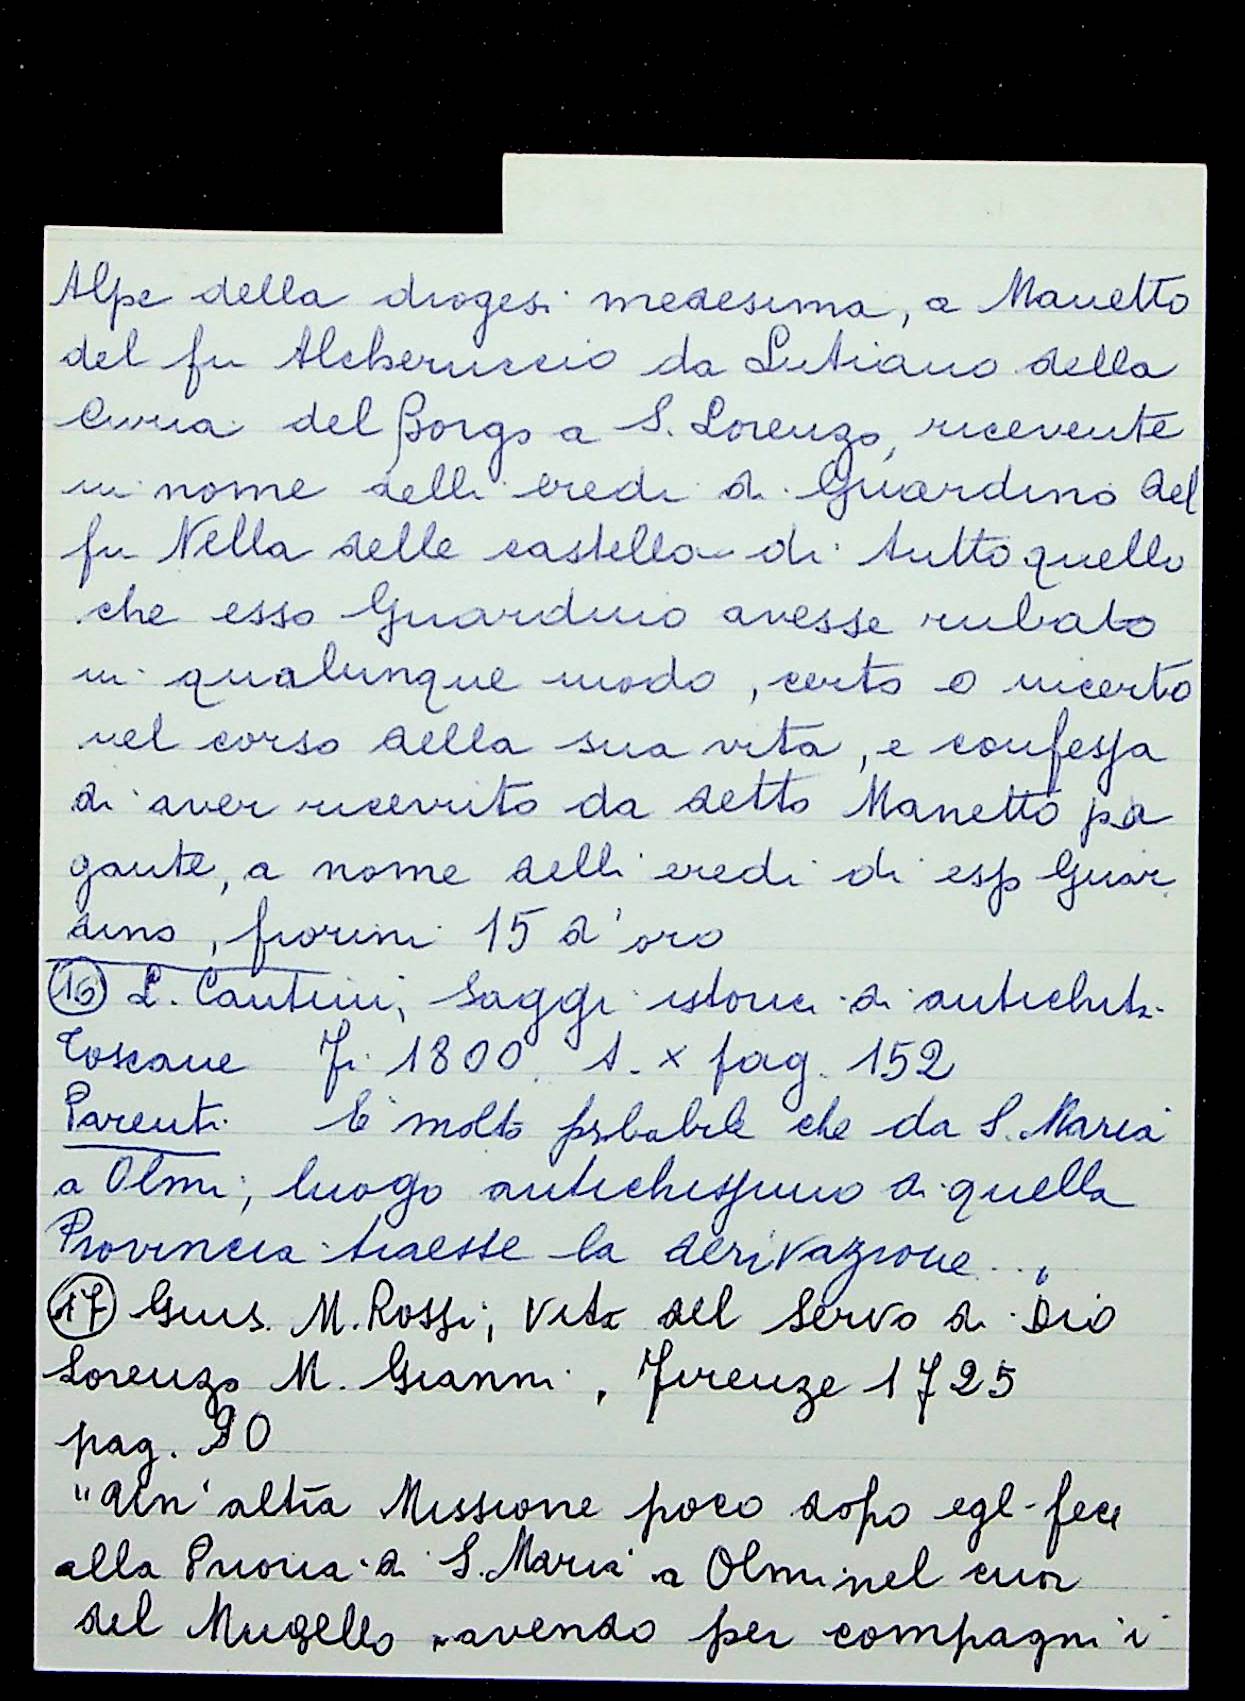 Alpe della diogesi medesima, a Manetto
del fu Alcheruccio da Lutiano della
Curia del Borgo a S. Lorenzo, ricevente
in nome delli eredi di Guardino del
fu Nella delle castella di tutto quello
che esso Guardino avesse rubato
in qualunque modo, certo o incerto
nel corso della sua vita, e confessa
di aver ricevuto da detto Manetto pa
gante, a nome delli eredi di esso Guar
dino, fiorini 15 d'oro
16 L. Cantini, Saggi istorici di antichità
Toscane Fi 1800. t. X pag. 152
Parenti È molto probabile che da S. Maria
a Olmi, luogo antichissimo di quella
Provincia traesse la derivazione...
17 Gius. M. Rossi, Vita del Servo di Dio
Lorenzo M. Gianni, Firenze 1725
pag. 90
"Un'altra Missione poco dopo egli fece
alla Prioria di S. Maria a Olmi nel cuor
del Mugello avendo per compagni i